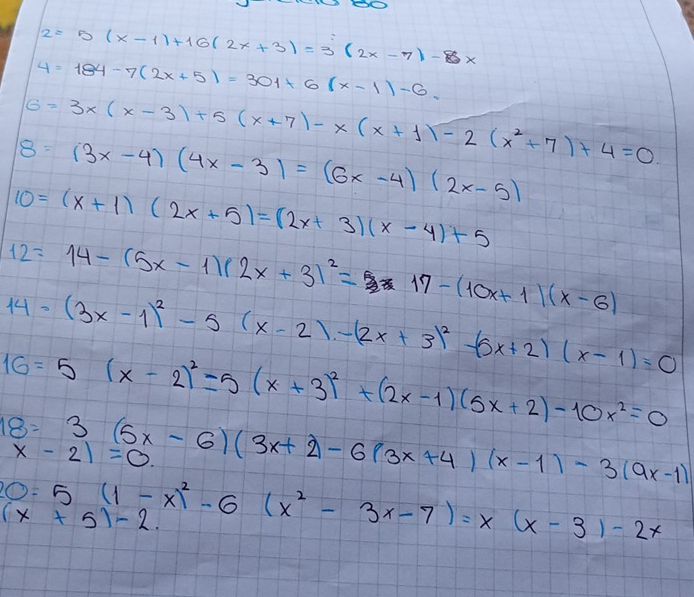 80
2= 5 (x-1)+16(2x+3)=3 (2x-7)-x
4= 184-7(2x+5)=301+6(x-1)-6.
6= 3x(x-3)+5(x+7)-x(x+1)-2(x²+7)+4=0.
8= (3x-4)(4x-3)=(6x-4)(2x-5)
10=(x+1)(2x+5)=(2x+3)(x-4)+5
12= 14-(5x-1)(2x+3)²= 17-(10x+1)(x-6)
14-(3x-1)²-5(x-2).-(2x+3)²-(5x+2)(x-1)=0
16=5 (x-2)²=5(x+3)²+(2x-1)(5x+2)-10x²=0
18= 3 (5x-6)(3x+2)-6(3x+4)(x-1)-3(9x-1)
x-2)=0.
20=5 (1-x)²-6 (x²-3x-7)=x(x-3)-2x
(x+5)-2.